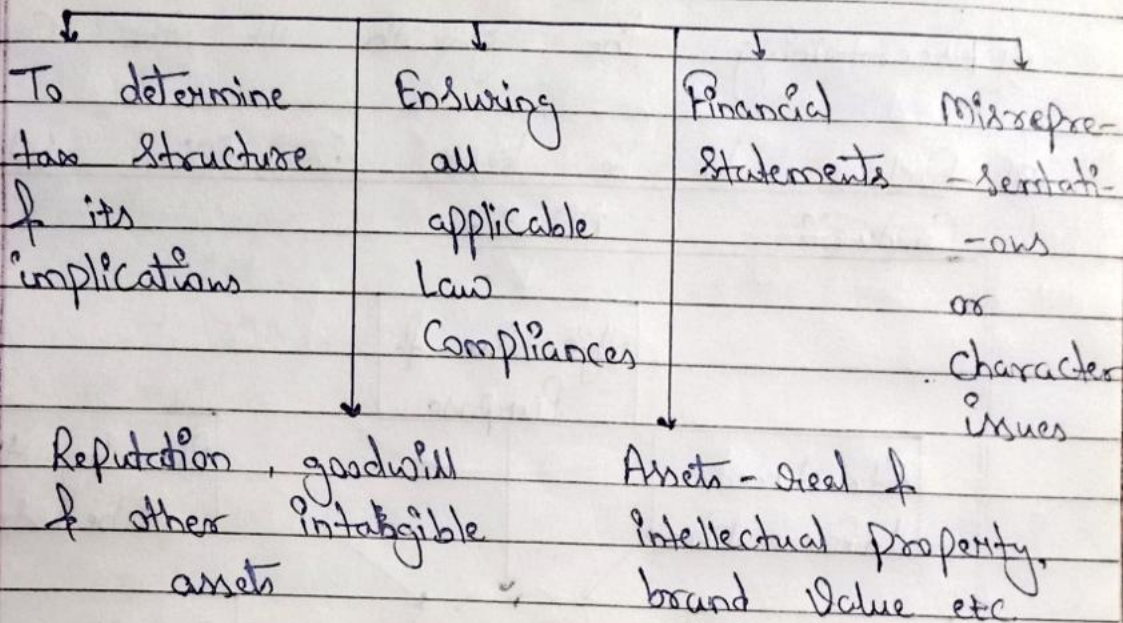 To determine
tax structure
& its
implications
Ensuring
all
applicable
Law
Compliances
Financial
Statements
Misrepre-
-sentati-
-ons
or
Character
issues
Reputation, goodwill
& other intangible
assets
Assets - real &
intellectual property,
brand value etc